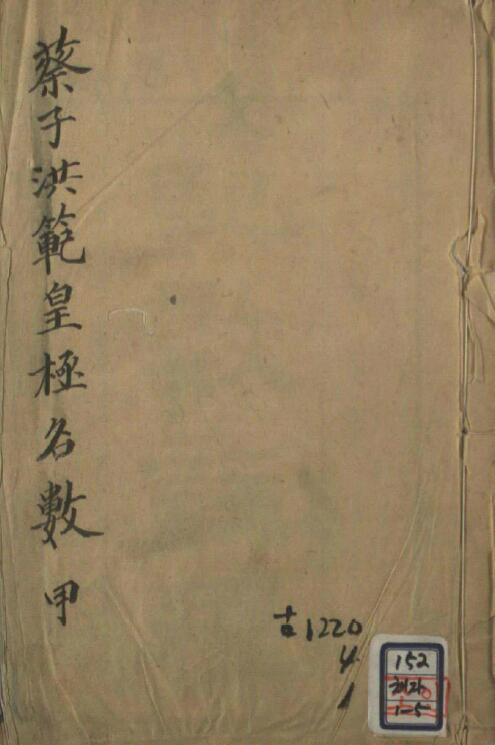 蔡子洪範皇極名數 甲
古1220
4
1
152
채21
1-5